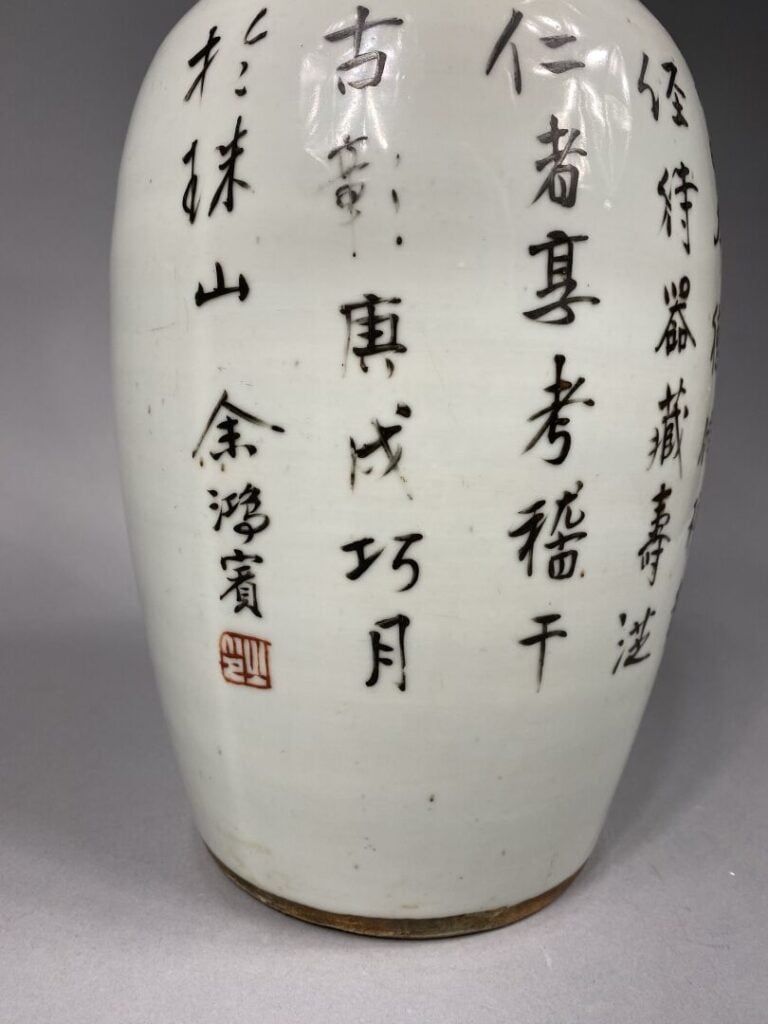 徑待器藏壽
仁者享考稽干
古彰庚戌巧月
於珠山余鴻賓